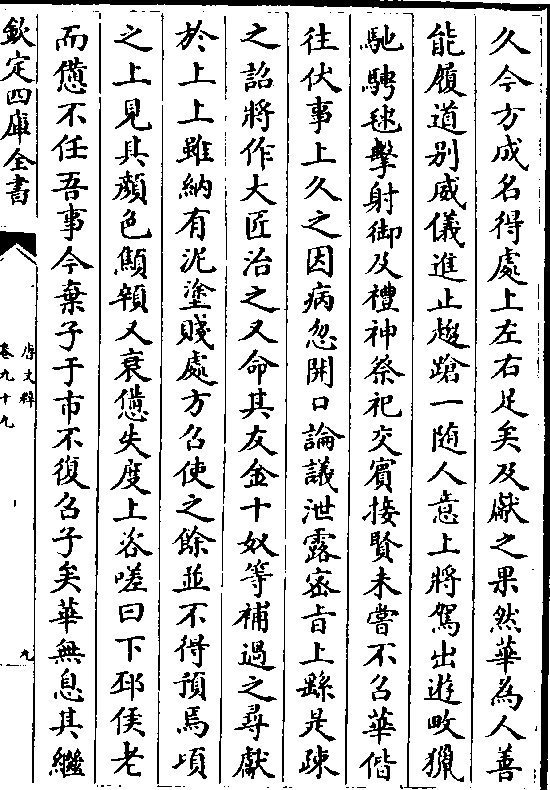 久今方成名得處上左右足矣及獻之果然華為人善
能履道别威儀進止趨蹌一随人意上將駕出遊畋獵
馳騁毬擊射御及禮神祭祀交賓接賢未嘗不召華偕
往伏事上久之因病忽開口論議泄露宻㫖上繇是疎
之詔將作大匠治之又命其友金十奴等補過之尋獻
於上上雖納有泥塗賤處方召使之餘並不得預焉頃
之上見其顔色顦顇又衰憊失度上咨嗟曰下邳侯老
而憊不任吾事今棄子于市不復召子矣華無息其繼
欽定四庫全書
唐文粹
卷九十九
九